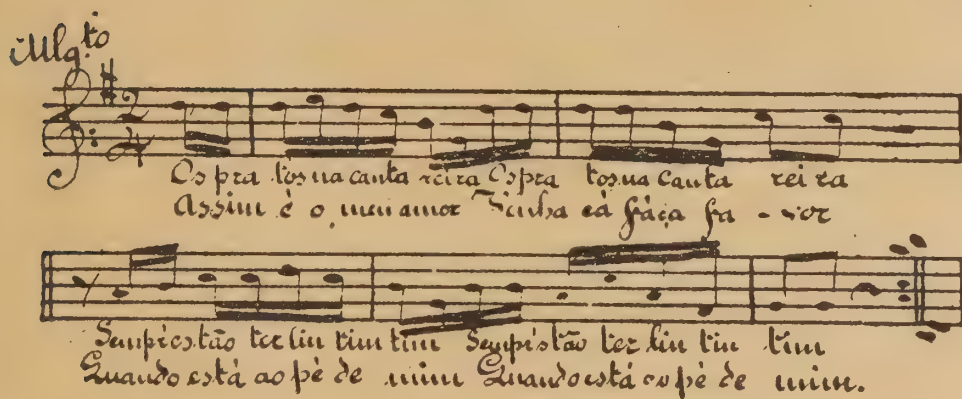 Allg.to
2
4
Os pra tos na canta reira Os pra tos na canta rei ra
Assim é o meu amor Tenha cá fáça fa - vor
Sempre stão ter lin tim tim Sempre stão ter lin tin tim
Quando está ao pé de mim Quando está ao pé de mim.